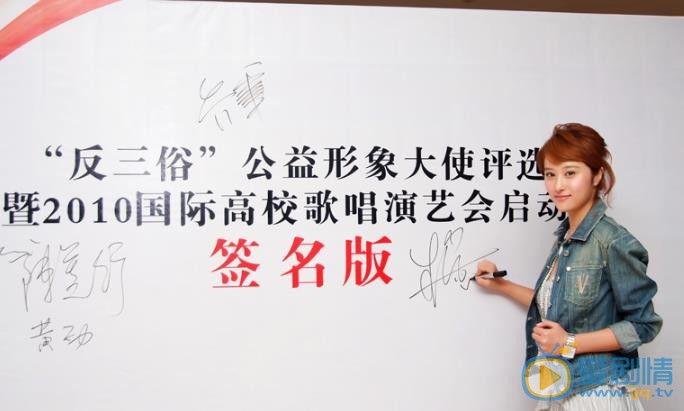 “反三俗”公益形象大使评选
暨2010国际高校歌唱演艺会启动
签名版
黄动
剧情
.tv